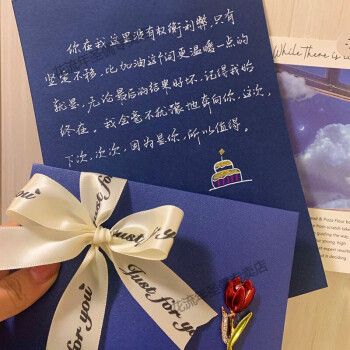 你在我这里没有权衡利弊,只有
坚定不移。比加油这个词更温暖一点的
就是,无论最后的结果好坏,记得我始
终在。我会毫不犹豫地奔向你,这次,
下次,次次,因为是你,所以值得。
While There is
Just for you
Just for you
for you